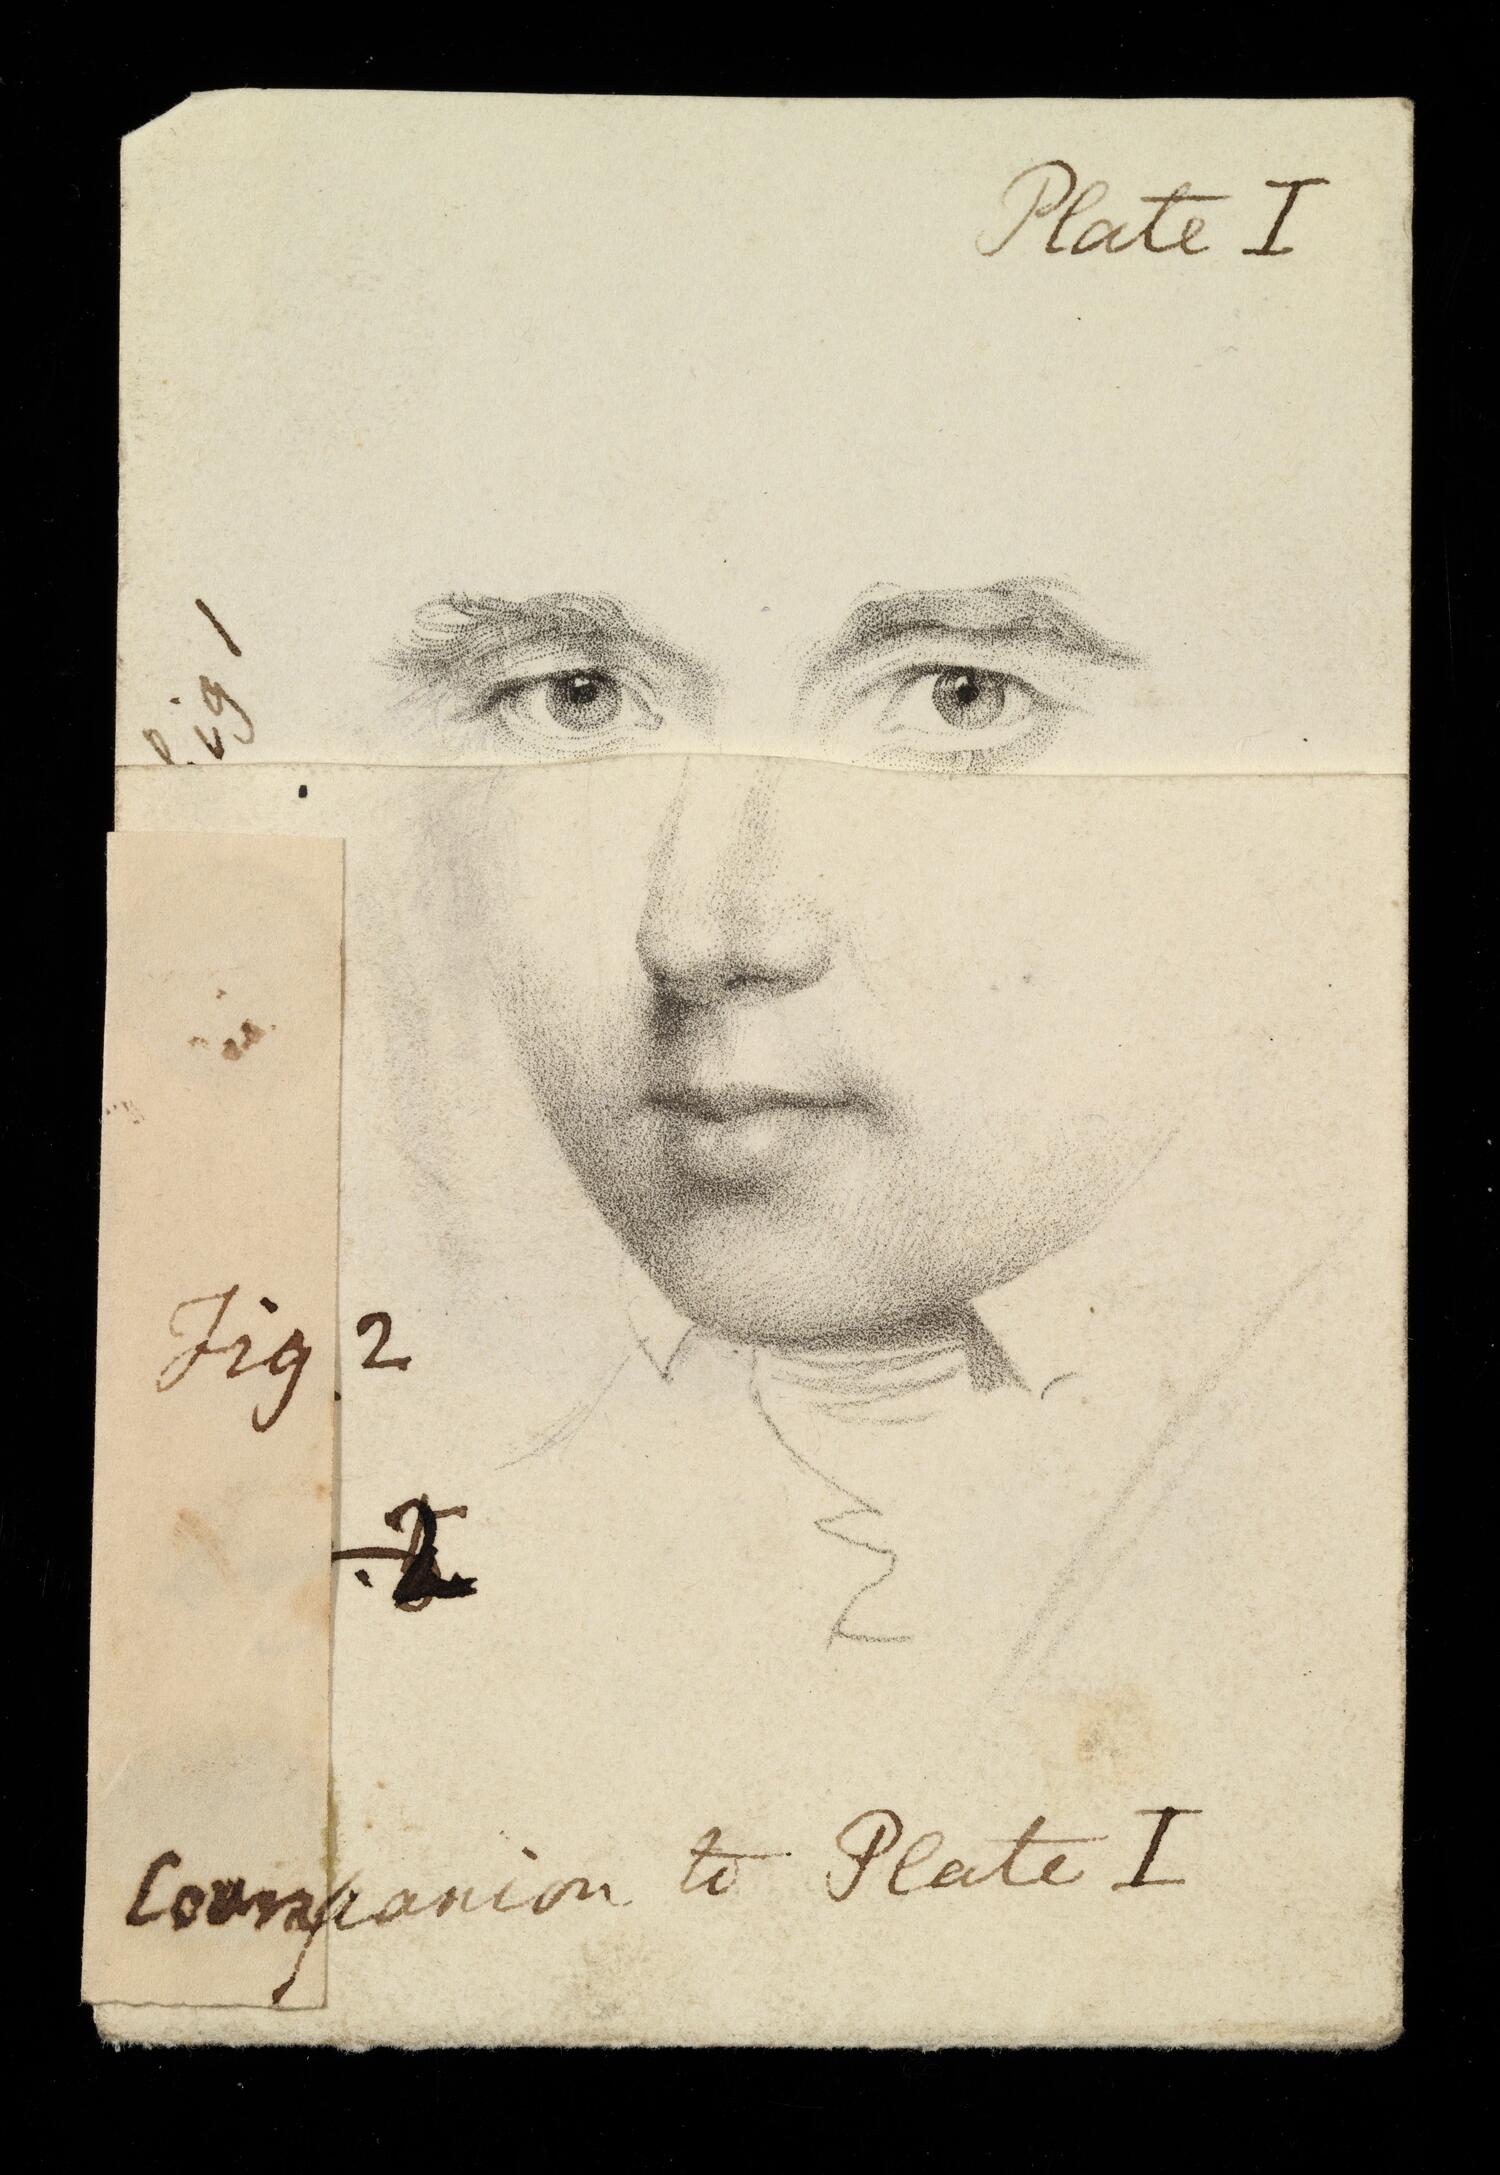 Plate I
Fig 1
Fig. 2
2
Companion to Plate I